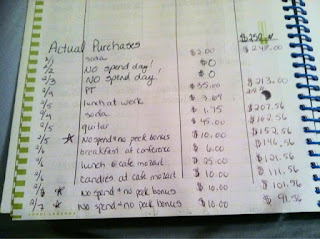 $250.00
Actual Purchases
2/1 soda $2.00 $248.00
2/2 NO spend day! $0
2/3 NO spend day! $0
2/4 PT $35.00 $213.00
2/5 lunch at work $3.69
2/5 soda $1.75 $207.56
2/5 guitar $45.00 $162.56
2/5 No spend + no peek bonus $10.00 $152.56
2/6 breakfast at conference $6.00 $146.56
2/6 lunch @ cafe mozart $25.00 $121.56
2/6 candies at cafe mozart $10.00 $111.56
No spend + no peek bonus $10.00 $101.56
2/7 No spend + no peek bonus $10.00 $91.56